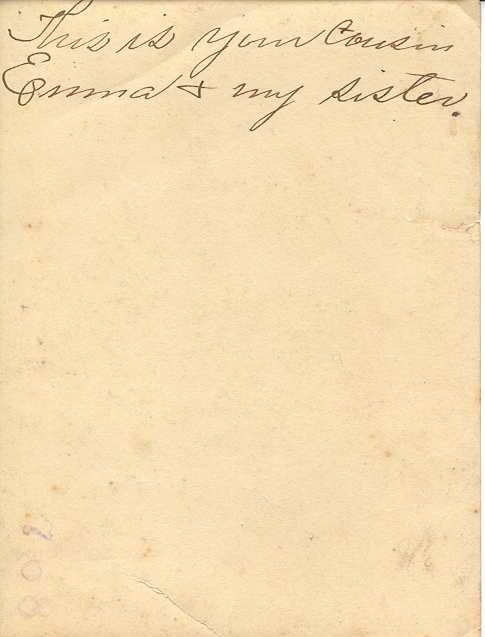 This is your Cousin
Emma & my sister.